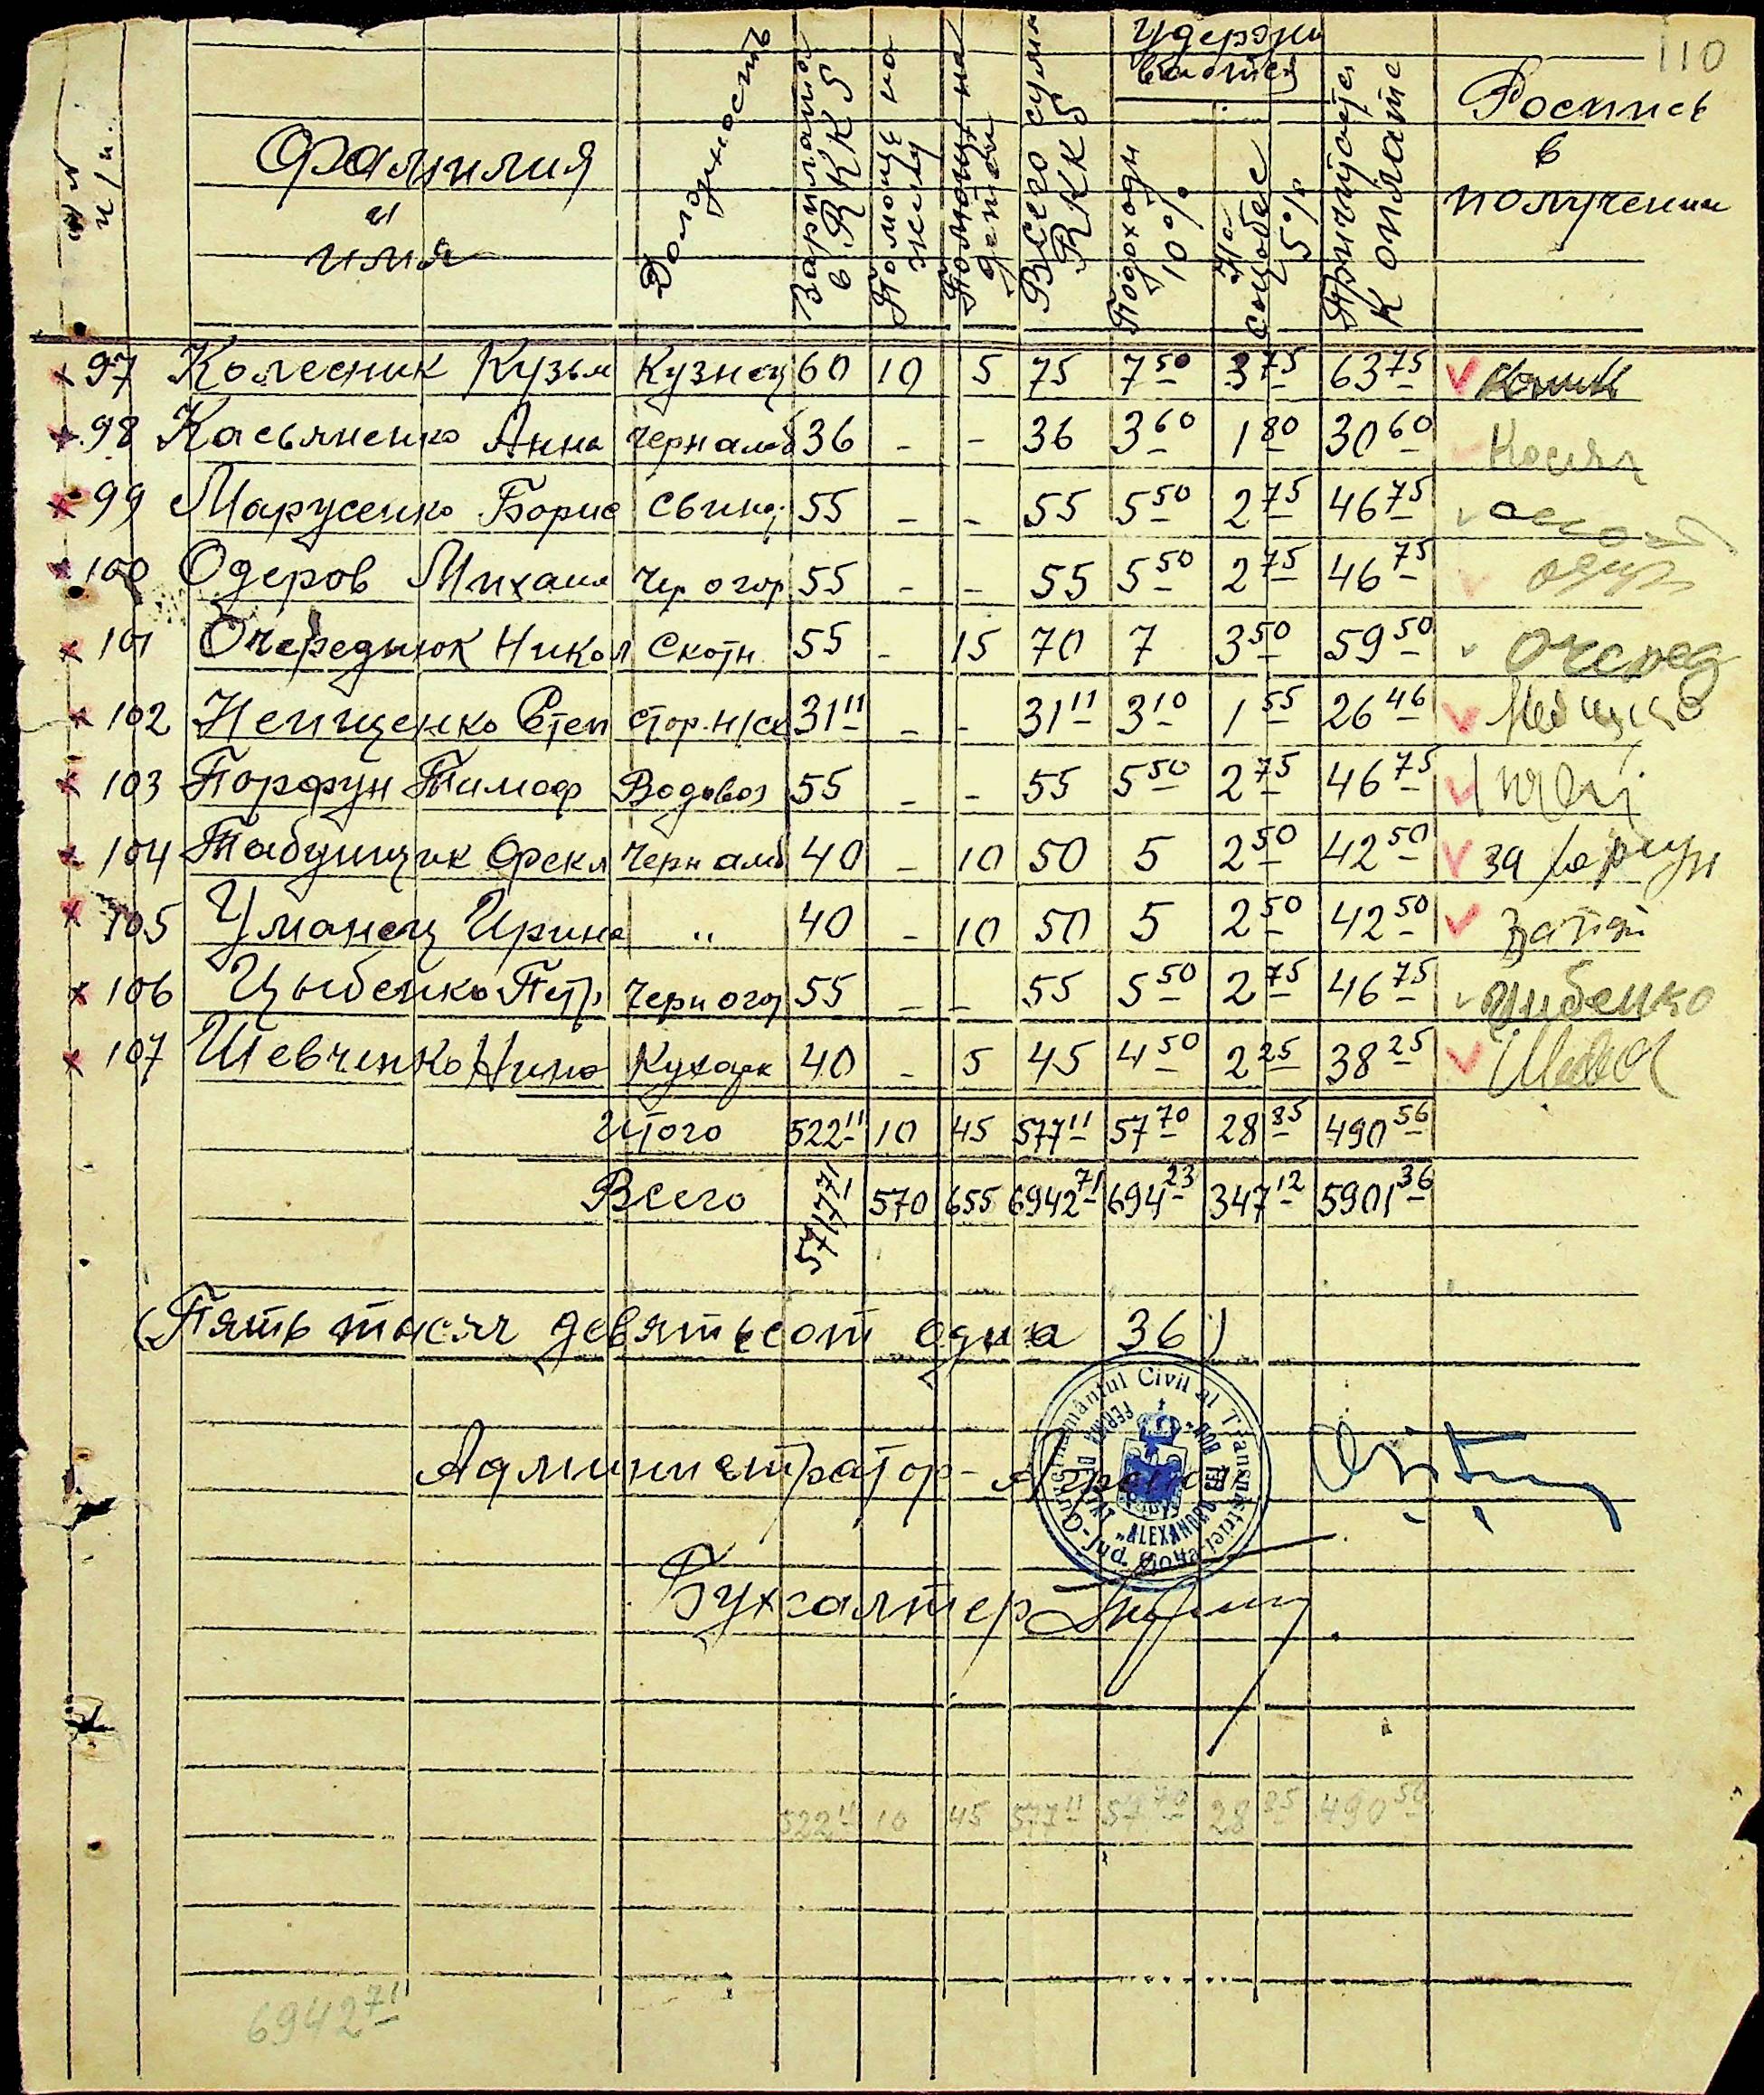 110
№№ п/п.
Фамилия и имя
Должность
Зарплата в RKKS
Помощь на жену
Помощь на детей
Всего сумма RKKS
Удержи вается
Подоходн 10%
На соцобес 5%
Причитается к оплате
Роспись в получении
97 Колесник Кузьм Кузнец 60 10 5 75 7 50 3 75 63 75
98 Касьяненко Анна Чернамб 36 - - 36 3 60 1 80 30 60 Касян
99 Марусенко Борис свинар 55 - - 55 5 50 2 75 46 75
100 Одеров Михаил Чер огор 55 - - 55 5 50 2 75 46 75
101 Очереднюк Никол Скотн 55 - 15 70 7 3 50 59 50 Очеред
102 Непщенко Степ Стор. н/ск 31 11 - - 31 11 3 10 1 55 26 46
103 Порфун Тимоф Водовоз 55 - - 55 5 50 2 75 46 75
104 Табунщик Фекл Черн амб 40 - 10 50 5 2 50 42 50 за
105 Уманец Ирина " 40 - 10 50 5 2 50 42 50
106 Цыбенко Петр Черн огор 55 - - 55 5 50 2 75 46 75 Цибенко
107 Шевченко Нина Кухарк 40 - 5 45 4 50 2 25 38 25 Шевч
Итого 522 11 10 45 577 11 57 70 28 85 490 56
Всего 5717 71 570 655 6942 71 694 23 347 12 5901 36
(Пять тысяч девятьсот одна 36)
Guvernământul Civil al Transnistriei
Jud.
FERMA DE STAT
"ALEXANDRU CEL BUN"
Администратор-
Бухгалтер
522 11 10 45 577 11 57 70 28 85 490 56
6942 71